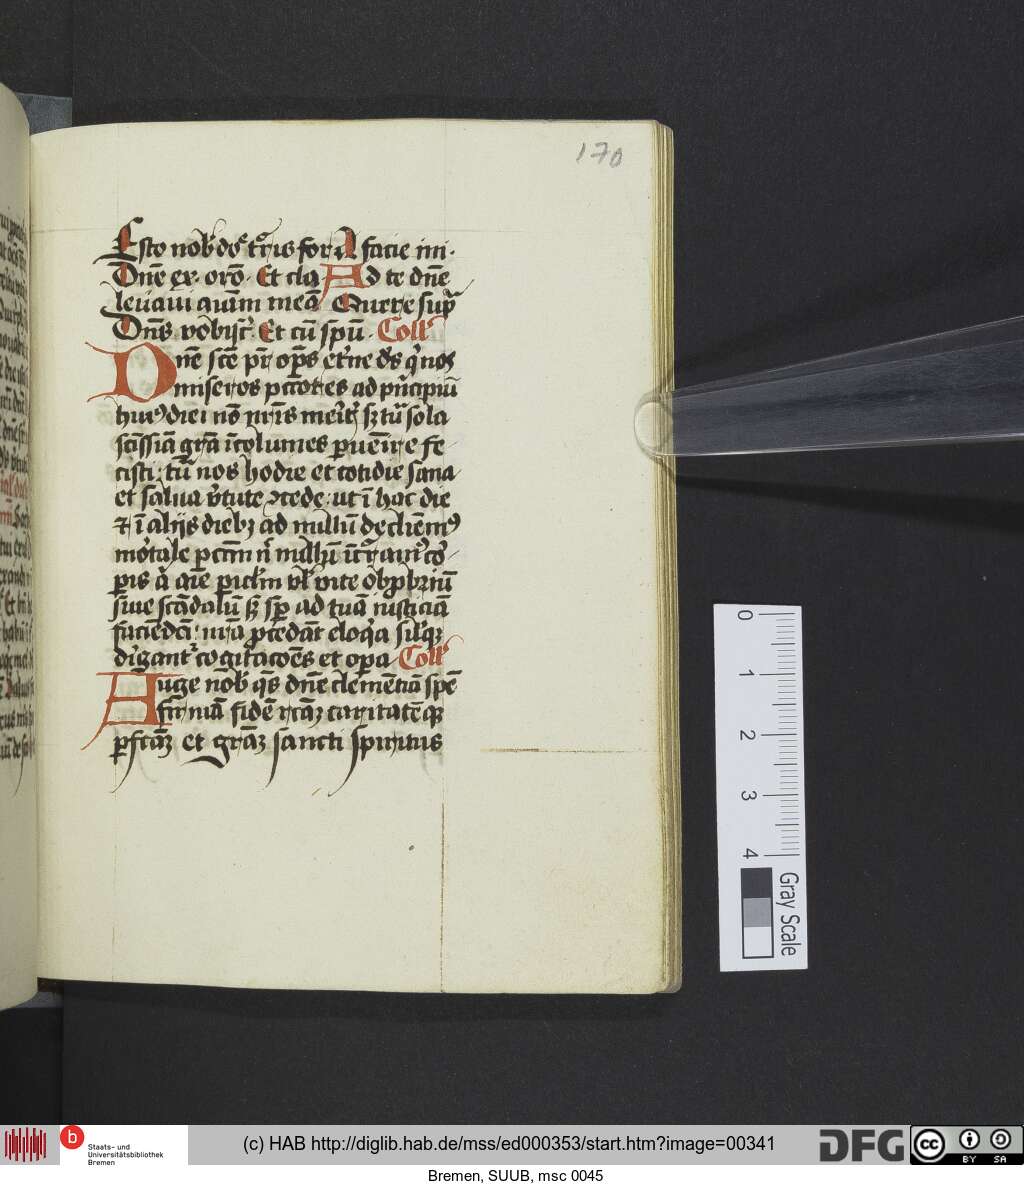 170
Esto nob̄ dn̄e tr̄ris for A facie ini
Dn̄e ex. orō. Et cla Ad te dn̄e
leuaui aīm meā Quere sup̄
Dn̄s vobisc̄ Et cū sp̄u. Coll̄
Dn̄e sc̄e pr̄ op̄s et̄ne ds̄ q̄ nos
miseros pcc̄ores ad pn̄cipiū
huiꝯ diei nō nr̄is mer̄it̄ sꝫ tū sola
sc̄issīa gr̄a īcolumes ꝑuenīre fe
cisti tū nos hodie et cotidie sana
et salua v̄tute ꝯcede ut ī hac die
⁊ ī alijs diebꝫ ad nullū declinēꝰ
mortale pcc̄m nͥ nullū īcͥ̄ aīe cor
pis ⁊ aīe picl̄m vl̄ vite obꝓbriū
siue scādalū sꝫ sp̄ ad tuā iusticiā
faciēdā nr̄a ꝓcedāt eloq̄a sil̄qꝫ
dir̄gant̄ cogitac̄oēs et op̄a Coll̄
Auge nob̄ q̄s dn̄e clemētiā spē
firmā fidē rc̄aꝫ caritatēqꝫ
ꝑfc̄aꝫ et gr̄aꝫ sancti spiritus
0
1
2
3
4
Gray Scale
b
Staats- und
Universitätsbibliothek
Bremen
(c) HAB http://diglib.hab.de/mss/ed000353/start.htm?image=00341
DFG
cc
BY SA
Bremen, SUUB, msc 0045